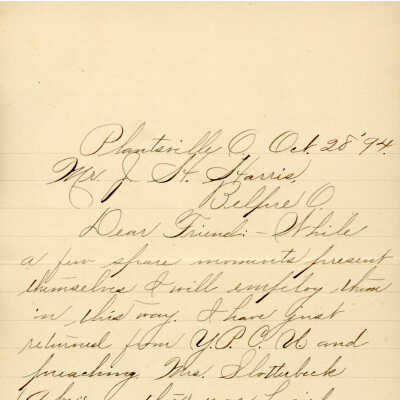 Plantsville O, Oct. 28 '94.
Mr. J. H. Harris,
Belpre O.
Dear Friend: - While
a few spare moments present
themselves I will employ them
in this way. I have just
returned from Y.P.C.U. and
preaching. Mrs. Slotterbeck